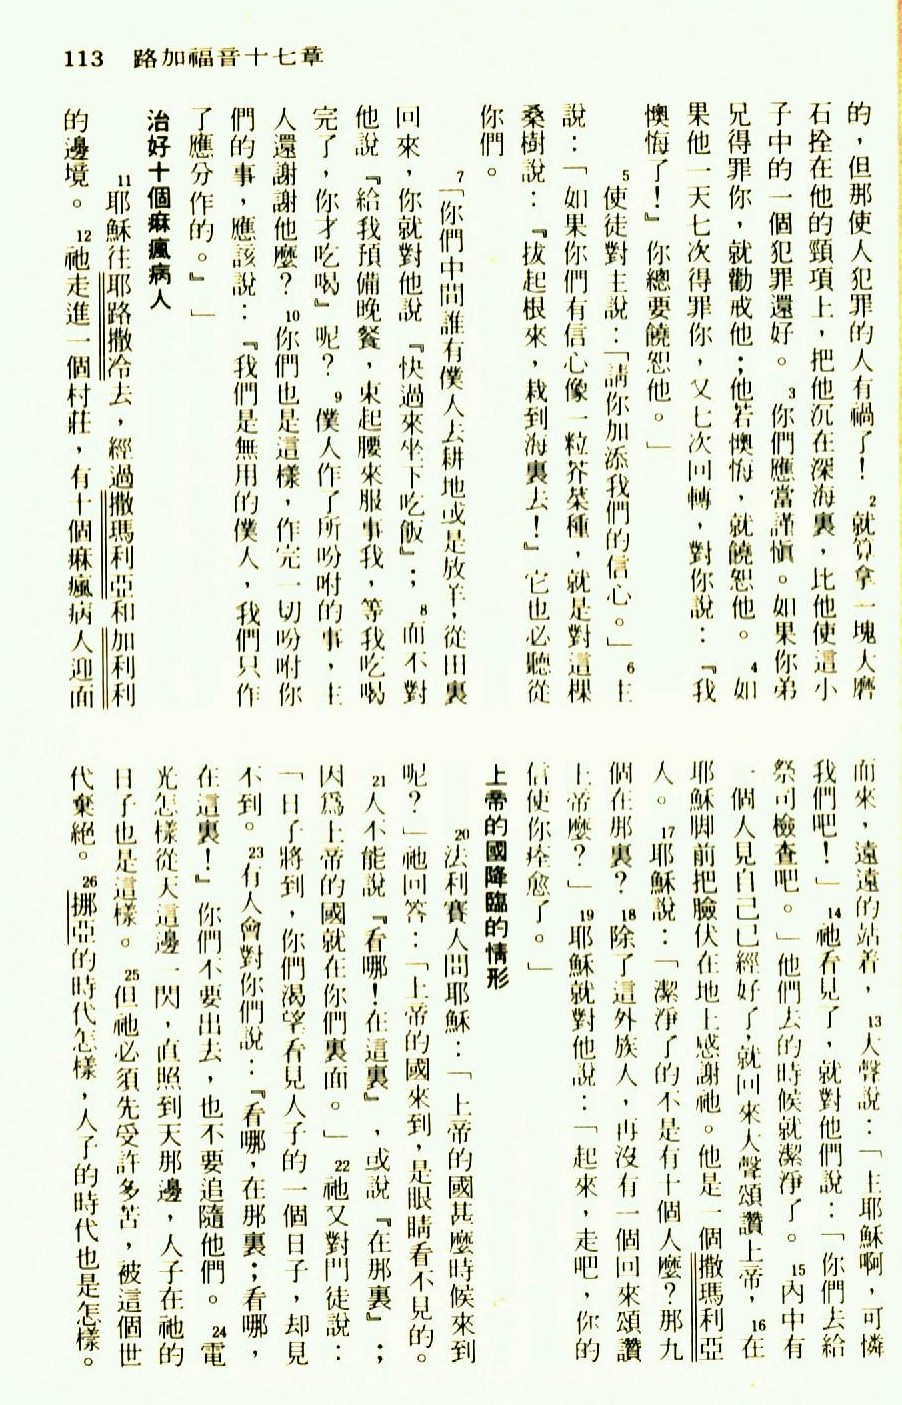 113 路加福音十七章
的，但那使人犯罪的人有禍了！ 2就算拿一塊大磨
石拴在他的頸項上，把他沉在深海裏，比他使這小
子中的一個犯罪還好。 3你們應當謹慎。如果你弟
兄得罪你，就勸戒他；他若懊悔，就饒恕他。 4如
果他一天七次得罪你，又七次回轉，對你說：『我
懊悔了！』你總要饒恕他。」
5使徒對主說：「請你加添我們的信心。」 6主
說：「如果你們有信心像一粒芥菜種，就是對這棵
桑樹說：『拔起根來，栽到海裏去！』它也必聽從
你們。
7「你們中間誰有僕人去耕地或是放羊，從田裏
回來，你就對他說『快過來坐下吃飯』； 8而不對
他說『給我預備晚餐，束起腰來服事我，等我吃喝
完了，你才吃喝』呢？ 9僕人作了所吩咐的事，主
人還謝謝他麼？ 10你們也是這樣，作完一切吩咐你
們的事，應該說：『我們是無用的僕人，我們只作
了應分作的。』」
治好十個痳瘋病人
11耶穌往耶路撒冷去，經過撒瑪利亞和加利利
的邊境。 12祂走進一個村莊，有十個痳瘋病人迎面
而來，遠遠的站着， 13大聲說：「主耶穌啊，可憐
我們吧！」 14祂看見了，就對他們說：「你們去給
祭司檢查吧。」他們去的時候就潔淨了。 15內中有
一個人見自己已經好了，就回來大聲頌讚上帝， 16在
耶穌脚前把臉伏在地上感謝祂。他是一個撒瑪利亞
人。 17耶穌說：「潔淨了的不是有十個人麼？那九
個在那裏？ 18除了這外族人，再沒有一個回來頌讚
上帝麼？」 19耶穌就對他說：「起來，走吧，你的
信使你痊愈了。」
上帝的國降臨的情形
20法利賽人問耶穌：「上帝的國甚麼時候來到
呢？」祂回答：「上帝的國來到，是眼睛看不見的。
21人不能說『看哪！在這裏』，或說『在那裏』；
因爲上帝的國就在你們裏面。」 22祂又對門徒說：
「日子將到，你們渴望看見人子的一個日子，却見
不到。 23有人會對你們說：『看哪，在那裏；看哪，
在這裏！』你們不要出去，也不要追隨他們。 24電
光怎樣從天這邊一閃，直照到天那邊，人子在祂的
日子也是這樣。 25但祂必須先受許多苦，被這個世
代棄絕。 26挪亞的時代怎樣，人子的時代也是怎樣。